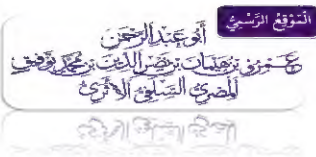 التوقع الرسمي
أبي عبد الرحمن
عمرو بن هيمان بن نصر الدين بن محمد توفيق
المصري السلفي الأثري